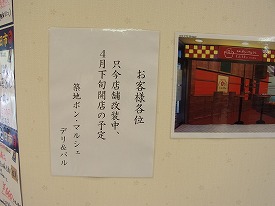 お客様各位
只今店舗改装中、
４月下旬開店の予定
築地ボン・マルシェ
デリ&バル